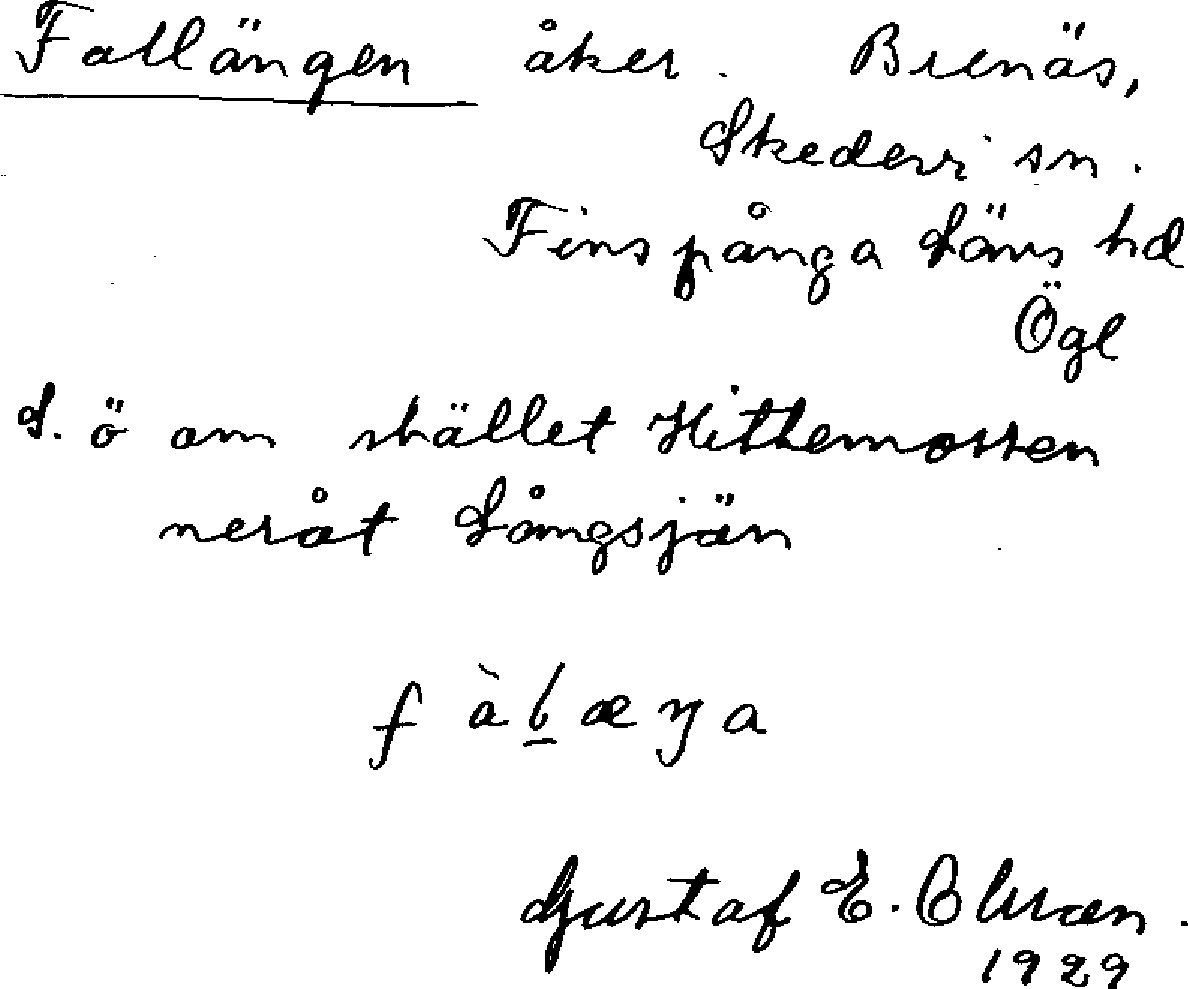 Fallängen åker. Brenäs,
Skedevi sn.
Finspånga Läns hd
Ögl
S. ö om stället Kittemossen
neråt Långsjön
Gustaf E. Olsson.
1929